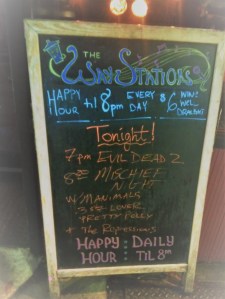 THE
WAY STATION
HAPPY HOUR til 8pm EVERY DAY $6 WINE/ WELL
Tonight!
7pm EVIL DEAD 2
8:30 MISCHIEF
NIGHT
w/ MANIMALS
LOVER,
PRETTY POLLY
+ THE
HAPPY : DAILY
HOUR : TIL 8PM